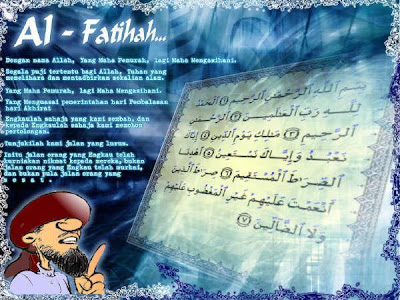 Al - Fatihah...
Dengan nama Allah, Yang Maha Pemurah, lagi Maha Mengasihani.
Segala puji tertentu bagi Allah, Tuhan yang
memelihara dan mentadbirkan sekalian alam.
Yang Maha Pemurah, lagi Maha Mengasihani.
Yang Menguasai pemerintahan hari Pembalasan
hari Akhirat
Engkaulah sahaja yang kami sembah, dan
kepada Engkaulah sahaja kami memohon
pertolongan.
Tunjukilah kami jalan yang lurus.
Iaitu jalan orang yang Engkau telah
kurniakan nikmat kepada mereka, bukan
jalan orang yang Engkau telah murkai,
dan bukan pula jalan orang yang
sesat.
بسم الله الرحمن الرحيم ١ الحمد
لله رب العالمين ٢ الرحمن الرحيم
٣ ملك يوم الدين ٤ إياك
نعبد وإياك نستعين ٥ اهدنا
الصراط المستقيم ٦ صراط الذين
أنعمت عليهم غير المغضوب عليهم
ولا الضالين ٧